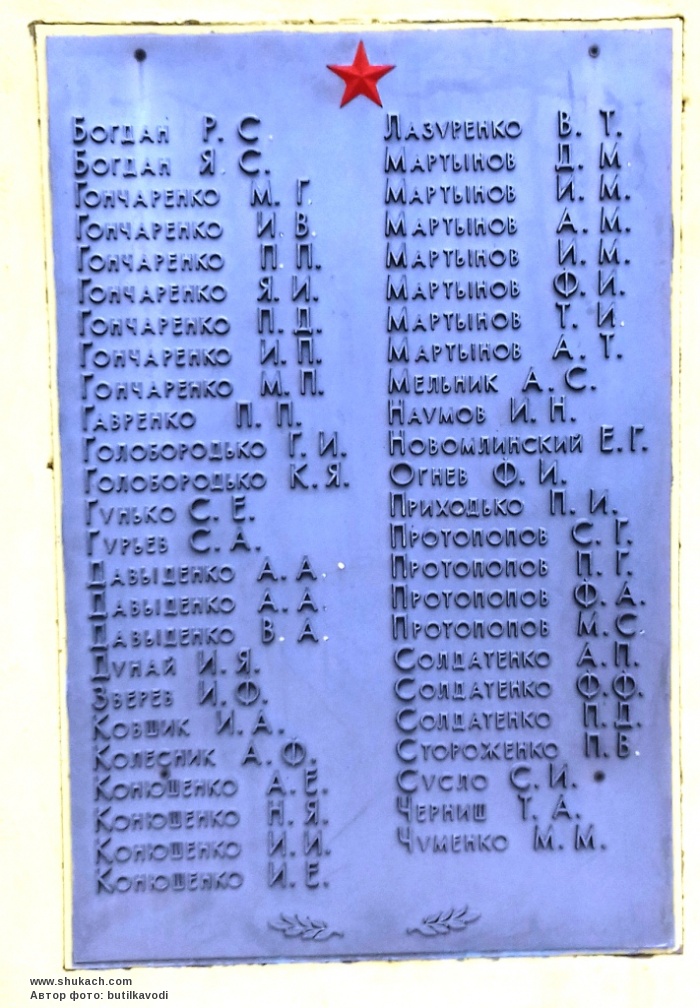 Богдан Р. С.
Богдан Я. С.
Гончаренко М. Г.
Гончаренко И. В.
Гончаренко П. П.
Гончаренко Я. И.
Гончаренко П. Д.
Гончаренко И. П.
Гончаренко М. П.
Гавренко П. П.
Голобородько Г. И.
Голобородько К. Я.
Гунько С. Е.
Гурьев С. А.
Давыденко А. А.
Давыденко А. А.
Давыденко В. А.
Дунай И. Я.
Зверев И. Ф.
Ковшик И. А.
Колесник А. Ф.
Конюшенко А. Е.
Конюшенко Н. Я.
Конюшенко И. И.
Конюшенко И. Е.
Лазуренко В. Т.
Мартынов Д. М.
Мартынов И. М.
Мартынов А. М.
Мартынов И. М.
Мартынов Ф. И.
Мартынов Т. И.
Мартынов А. Т.
Мельник А. С.
Наумов И. Н.
Новомлинский Е. Г.
Огнев Ф. И.
Приходько П. И.
Протопопов С. Г.
Протопопов П. Г.
Протопопов Ф. А.
Протопопов М. С.
Солдатенко А. П.
Солдатенко Ф. Ф.
Солдатенко П. Д.
Стороженко П. В.
Сусло С. И.
Черниш Т. А.
Чуменко М. М.
www.shukach.com
Автор фото: butilkavodi